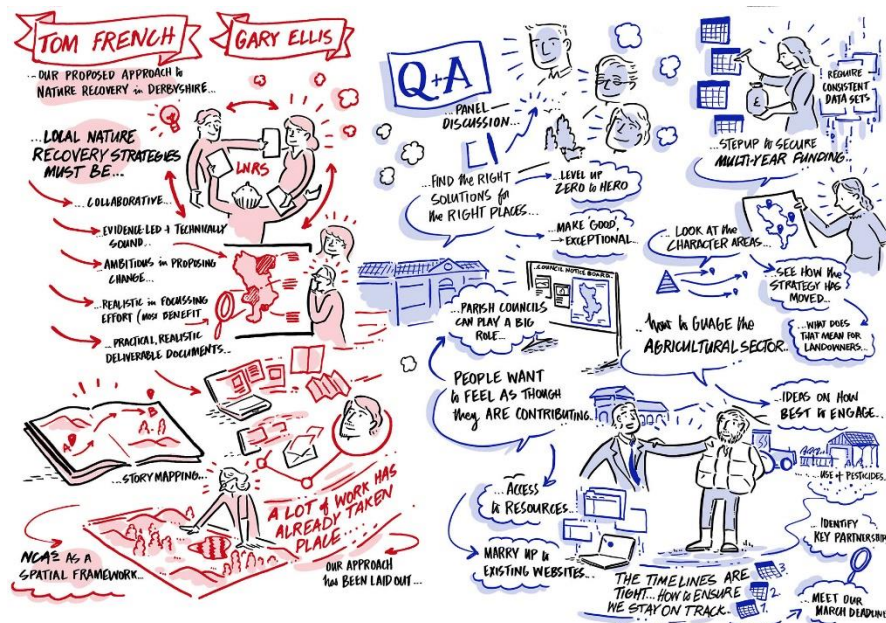 TOM FRENCH
GARY ELLIS
...OUR PROPOSED APPROACH to
NATURE RECOVERY in DERBYSHIRE...
...LOCAL NATURE
RECOVERY STRATEGIES
MUST BE...
LNRS
...COLLABORATIVE...
...EVIDENCE-LED + TECHNICALLY
SOUND...
...AMBITIOUS in PROPOSING
CHANGE...
...REALISTIC in FOCUSSING
EFFORT (MOST BENEFIT
...PRACTICAL, REALISTIC
DELIVERABLE DOCUMENTS...
A
B
...STORYMAPPING...
A LOT of WORK HAS
ALREADY TAKEN
PLACE...
NCAs AS A
SPATIAL FRAMEWORK...
OUR APPROACH
has BEEN LAID OUT...
Q+A
...PANEL
DISCUSSION...
...FIND the RIGHT
SOLUTIONS for
the RIGHT PLACES...
...LEVEL UP
ZERO to HERO
...MAKE 'GOOD,'
EXCEPTIONAL...
COUNCIL NOTICE BOARD
...PARISH COUNCILS
CAN PLAY A BIG
ROLE...
PEOPLE WANT
to FEEL AS THOUGH
they ARE CONTRIBUTING...
...ACCESS
to RESOURCES...
...MARRY UP to
EXISTING WEBSITES...
£
REQUIRE
CONSISTENT
DATA SETS
...STEP UP to SECURE
MULTI-YEAR FUNDING...
...LOOK AT the
CHARACTER AREAS...
...SEE HOW the
STRATEGY HAS
MOVED...
...WHAT DOES
THAT MEAN FOR
LANDOWNERS...
...how to GUAGE the
AGRICULTURAL SECTOR...
...IDEAS ON HOW
BEST to ENGAGE...
...USE of PESTICIDES...
...IDENTIFY
KEY PARTNERSHIP
THE TIMELINES ARE
TIGHT... HOW to ENSURE
WE STAY ON TRACK.
3.
2
1.
...MEET OUR
MARCH DEADLINE